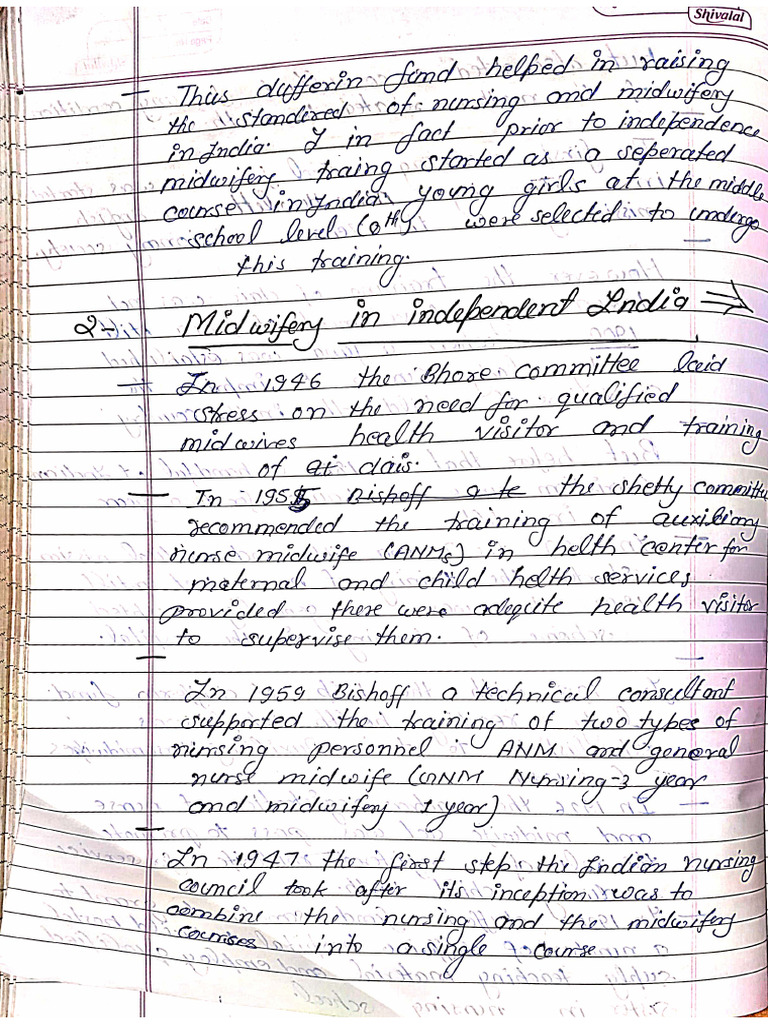 Shivalal
– Thus dufferin fund helped in raising
the standered of nursing and midwifery
in India. I in fact prior to independence
midwifery traing started as a seperated
course in India young girls at the middle
school level (8th). were selected to undergo
this training.
2- Midwifery in independent India ⇒
– In 1946 the Bhore committee laid
stress on the need for qualified
midwives health visitor and training
of at dais.
– In 1955 Bishoff a te the shetty committe
recommended the training of auxiliary
nurse midwife (ANMs) in helth center for
maternal and child helth services
provided there were adequite health visitor
to supervise them.
–
In 1959 Bishoff a technical consultant
supported the training of two types of
nursing personnel ANM and general
nurse midwife (GNM Nursing-3 year
and midwifery 1 year)
–
In 1947 the first step the Indian nursing
council took after its inception was to
combine the nursing and the midwifery
courses into a single course